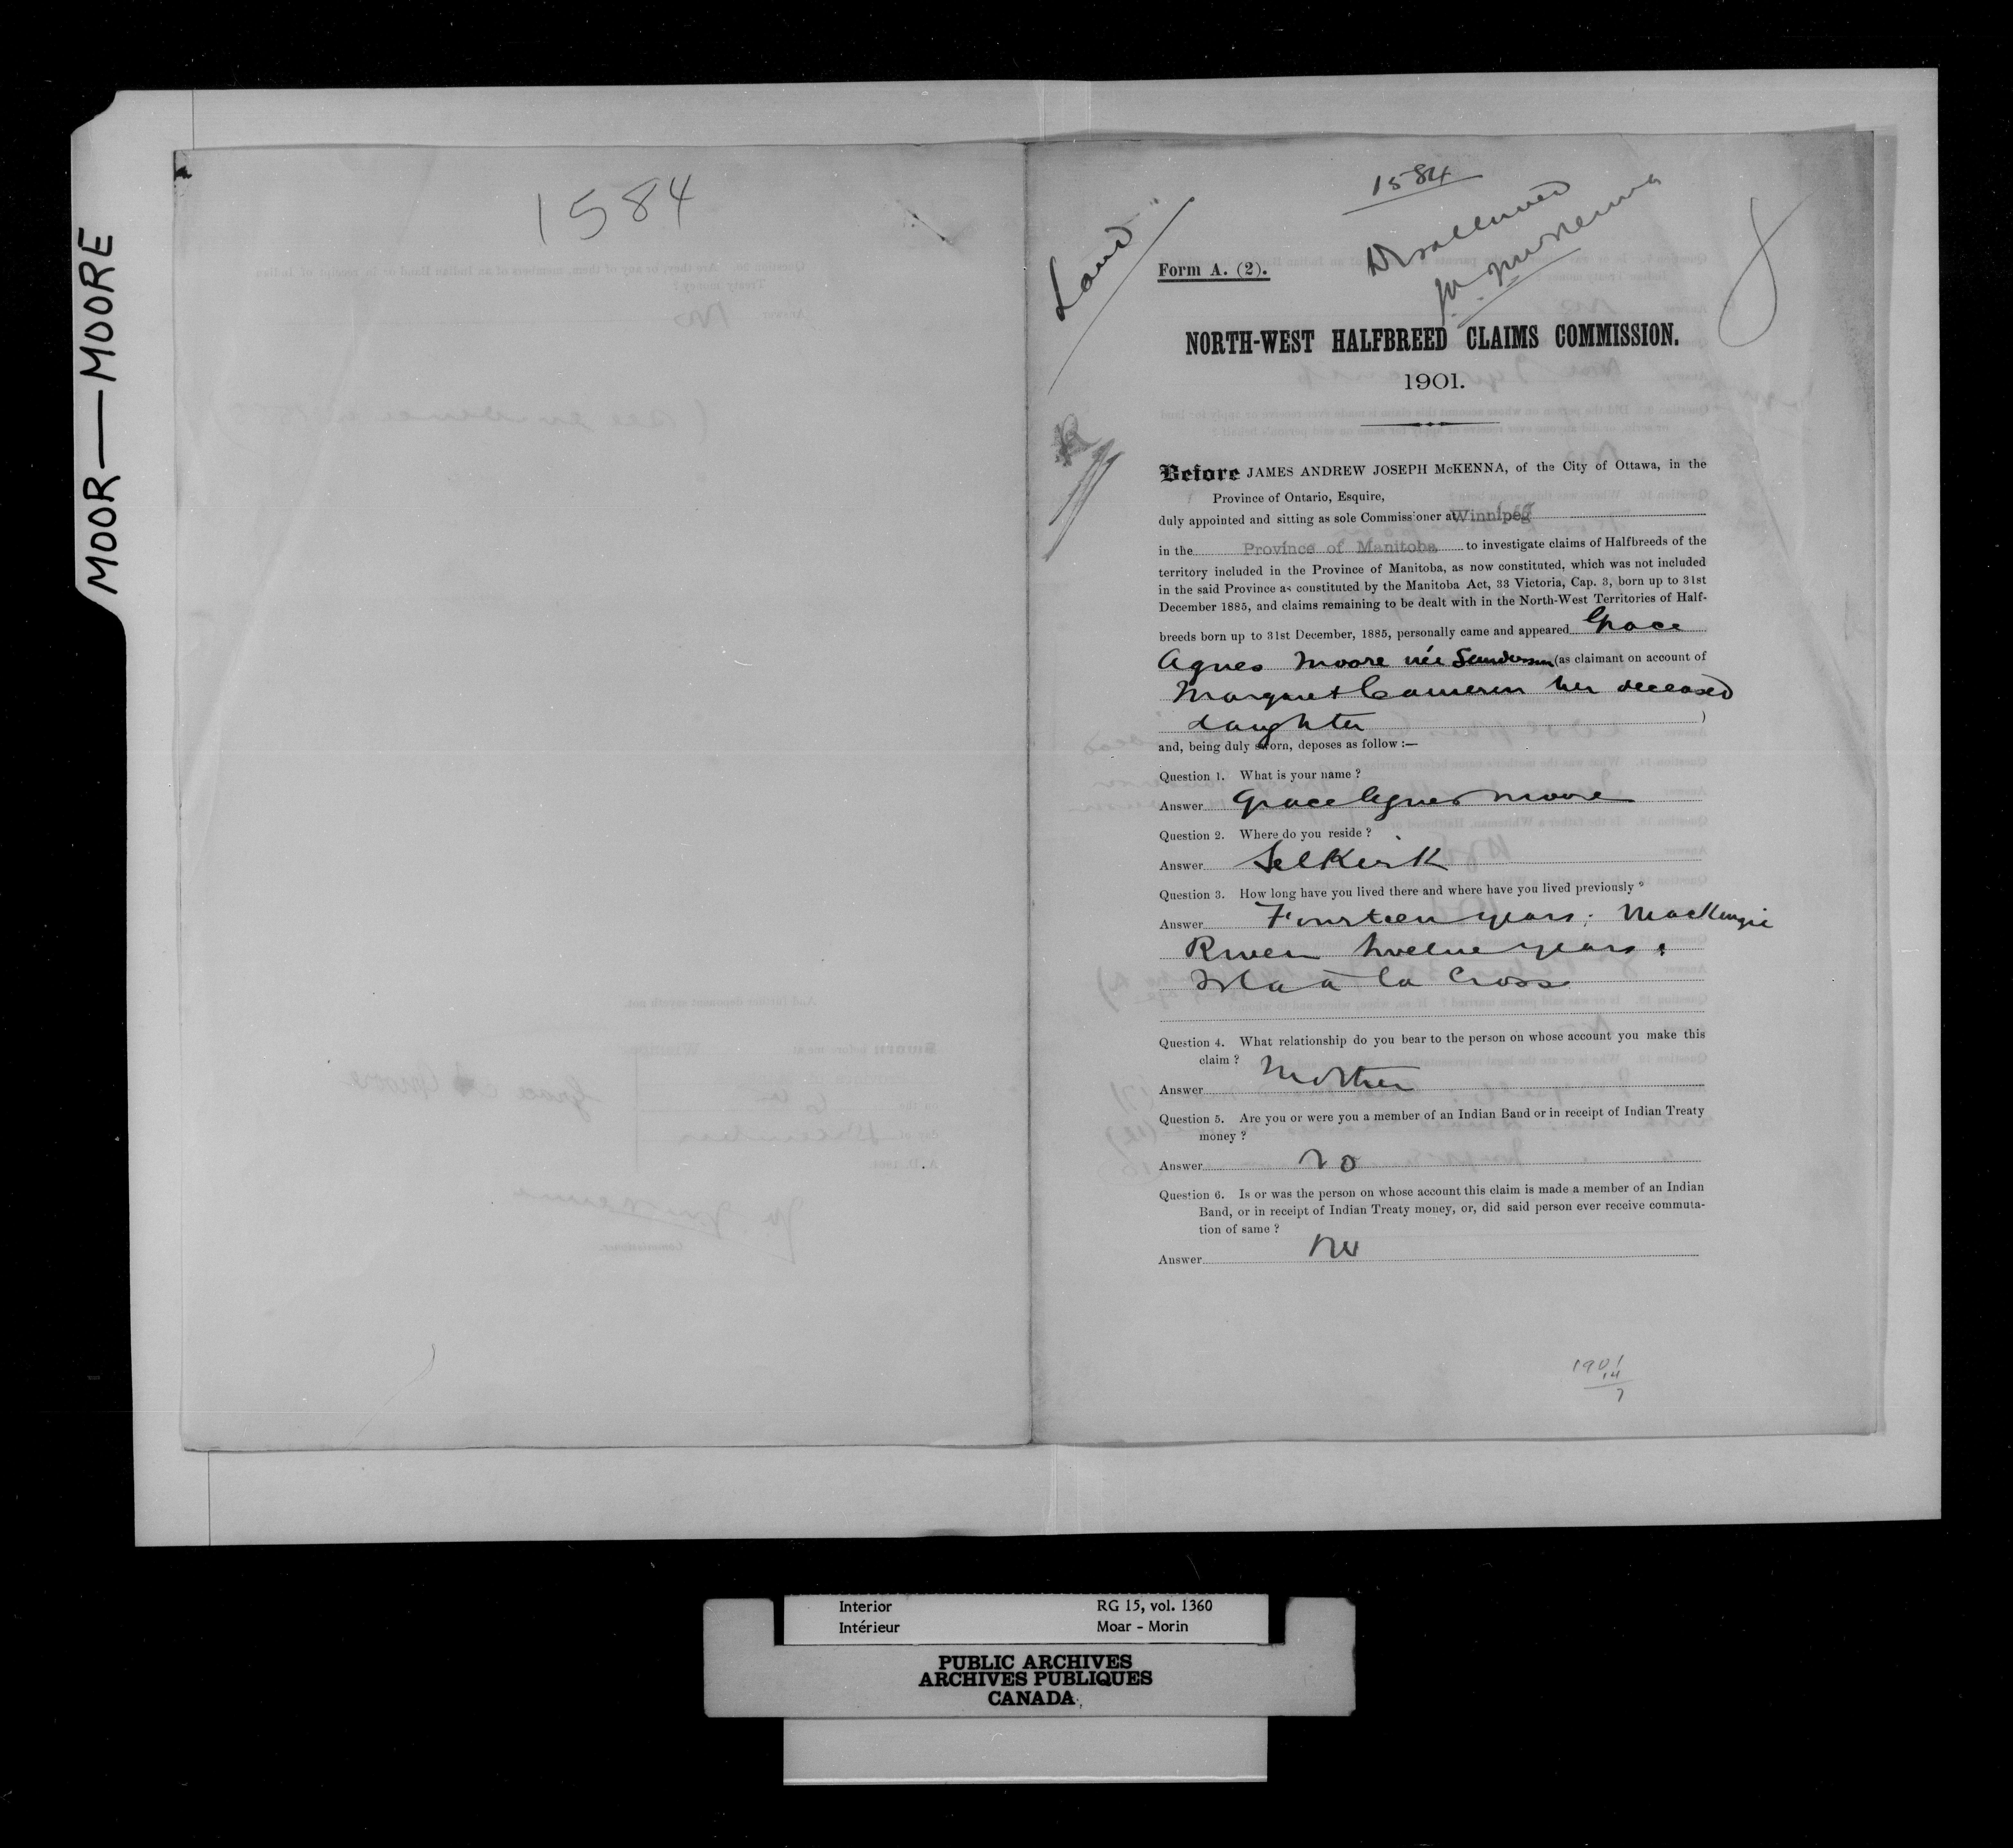 MOOR—MOORE
1584
1584
Land
Disallowed
J.A.J. McKenna
Form A. (2).
NORTH-WEST HALFBREED CLAIMS COMMISSION.
1901.
Before JAMES ANDREW JOSEPH McKENNA, of the City of Ottawa, in the
Province of Ontario, Esquire,
duly appointed and sitting as sole Commissioner at Winnipeg
in the Province of Manitoba to investigate claims of Halfbreeds of the
territory included in the Province of Manitoba, as now constituted, which was not included
in the said Province as constituted by the Manitoba Act, 33 Victoria, Cap. 3, born up to 31st
December 1885, and claims remaining to be dealt with in the North-West Territories of Half-
breeds born up to 31st December, 1885, personally came and appeared Grace
Agnes Moore née Sanderson (as claimant on account of
Margaret Cameron her deceased
daughter )
and, being duly sworn, deposes as follow :—
Question 1. What is your name ?
Answer Grace Agnes Moore
Question 2. Where do you reside ?
Answer Selkirk
Question 3. How long have you lived there and where have you lived previously ?
Answer Fourteen years; MacKenzie
River twelve years;
Isla à la Cross
Question 4. What relationship do you bear to the person on whose account you make this
claim ?
Answer Mother
Question 5. Are you or were you a member of an Indian Band or in receipt of Indian Treaty
money ?
Answer No
Question 6. Is or was the person on whose account this claim is made a member of an Indian
Band, or in receipt of Indian Treaty money, or, did said person ever receive commuta-
tion of same ?
Answer No
1901
14
7
Interior RG 15, vol. 1360
Intérieur Moar - Morin
PUBLIC ARCHIVES
ARCHIVES PUBLIQUES
CANADA